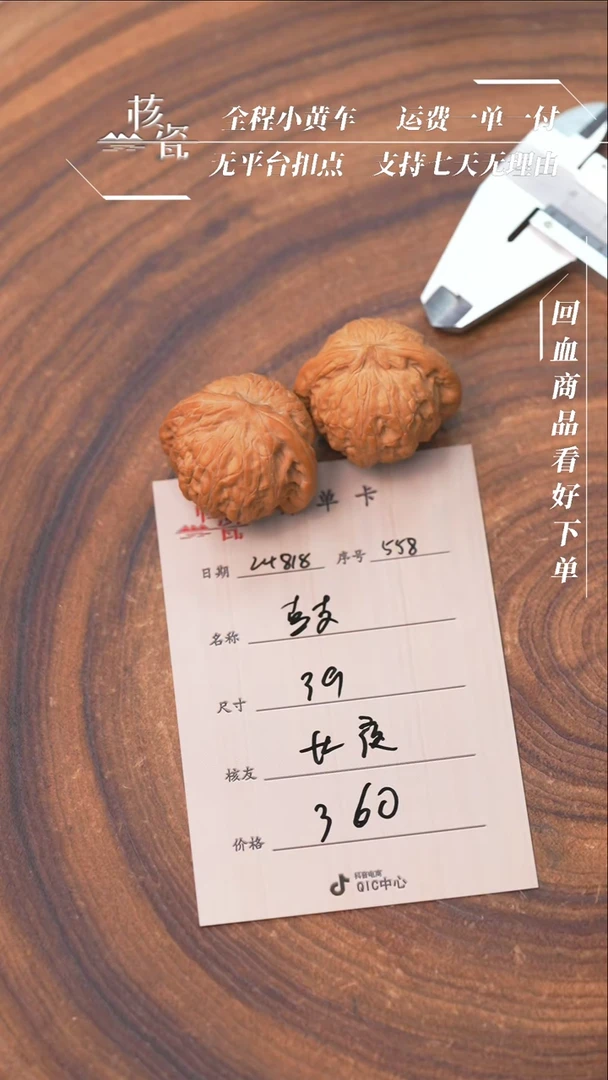 核瓷
全程小黄车 运费一单一付
无平台扣点 支持七天无理由
回血商品看好下单
单卡
日期 24818 序号 558
名称 鼓
尺寸 39
核友
价格 360
抖音电商
QIC中心